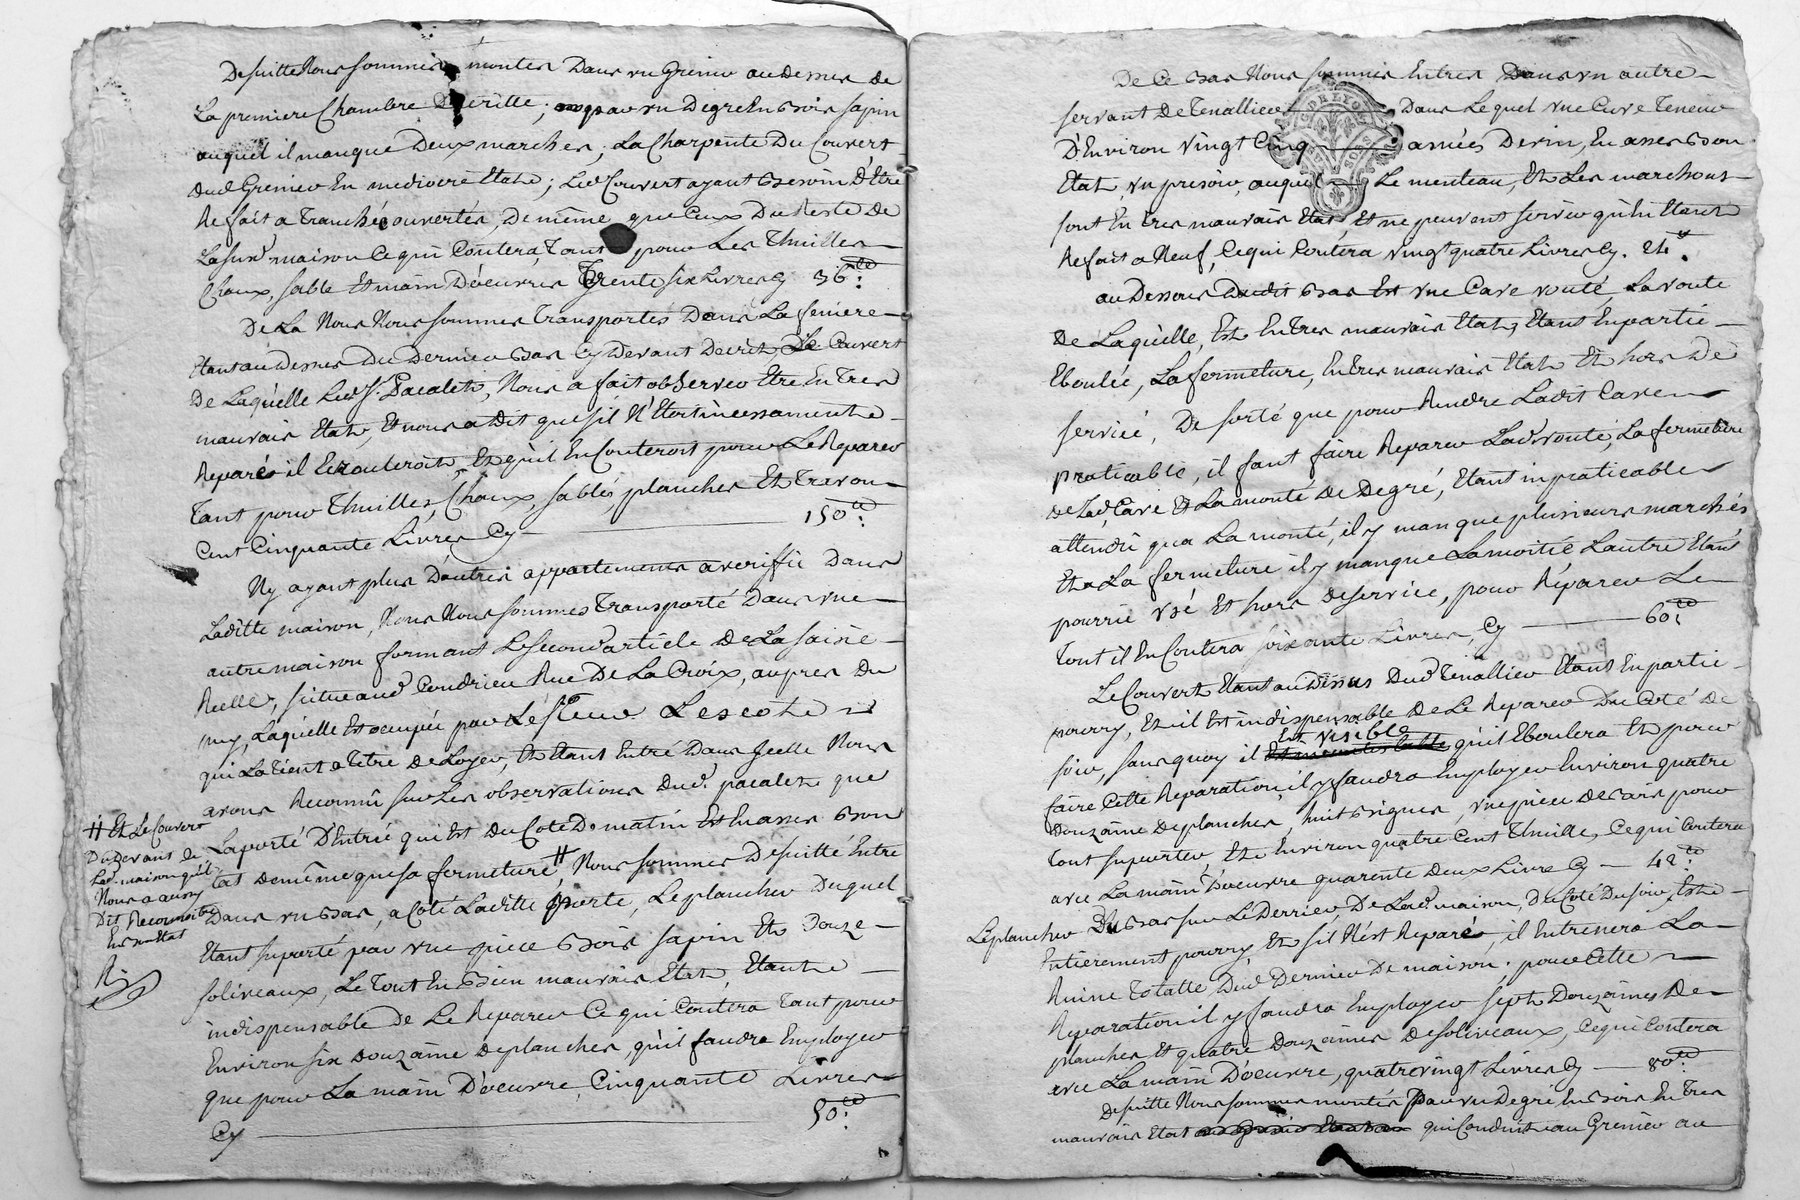 De suitte Nous sommes montés Dans un Grenier au dessus de
La premiere Chambre Décritte; par un Degré En Bois sapin
auquel il manque Deux marches; La Charpente Du Couvert
Dud Grenier En mediocre Etat; Led Couvert ayant Besoin D'Etre
Refait a Tranchée ouvertes, De même que Ceux Du Reste De
La susd maison Ce qui Coutera, Tant pour Les Thuilles
Chaux, sable Et main D'oeuvres Trente six Livres Cy 36 ₶
De La Nous Nous sommes Transportés Dans La feniere
Etant au Dessus Du Dernier Bas Cy Devant Décrit, Le Couvert
De Laquelle Led Sr. Pacalet, Nous a fait observer Etre En Tres
mauvais Etat, Et nous a Dit que s'il N'Etoit incessamment
Reparé il Ecrouleroit, Et qu'il En Couteroit pour Le Reparer
Tant pour Thuilles, Chaux, sables, planches Et Travon
Cent Cinquante Livres Cy 150 ₶
N'y ayant plus D'autres appartements a veriffié Dans
Laditte maison, Nous Nous sommes Transporté Dans une
autre maison formant Le second article De La saisie
Reelle, scitue aud Condrieu Rue De La Croix, aupres Du
puy, Laquelle Est ocupée par Le sieur Lescot
qui La Tient a Titre De Loyer, Et Etant Entré Dans Jcelle Nous
avons Reconnu sur Les observations Dud. pacalet que
La porte D'Entrée qui Est Du Coté Du matin Est En asses Bon
Etat de même que sa fermeture, # Nous sommes De suitte Entré
# Et Le Couvert
Du Devant de
Lad. maison qu'il
Nous a aussy
Dit Reconnoitre
En Bon Etat
Dans un Bas, a Coté Laditte porte, Le plancher Duquel
Etant suporté par une piece Bois sapin Et Douze
soliveaux, Le Tout En Bien mauvais Etat, Etant
indispensable de Le Reparer Ce qui Coutera Tant pour
Environ six Douzaine De planches, qu'il faudra Employer
que pour La main D'oeuvre Cinquante Livres
Cy 50 ₶
De Ce Bas Nous sommes Entrés Dans un autre
servant De Tenallier Dans Lequel une Cuve Teneur
D'Environ Vingt Cinq asnées De vin, En asses Bon
Etat, un presoir, auquel Le menteau, Et Les marchons
sont En Tres mauvais Etat, Et ne peuvent servir qu'En Etant
Refait a Neuf, Ce qui Coutera Vingt quatre Livres Cy. 24 ₶
au Dessous Dudit Bas Est une Cave vouté, La voute
De Laquelle, Est En Tres mauvais Etat, Etant En partie
Eboulée, La fermeture, En Tres mauvais Etat Et hors De
service, De sorte que pour Rendre Ladit Cave
praticable, il faut faire Reparer Lad. voute, La fermeture
de Lad. Cave Et La monté De Degré, Etant inpraticable
attendu qua La monté, il y manque plusieurs marches
Et a La fermeture il y manque La moitié, Lautre Etant
pourrie Usé Et hors de service, pour Réparer Le
Tout il En Coutera soixante Livres, Cy 60 ₶
Le Couvert Etant au Dessus Dud Tenallier Etant En partie
pourry, Et il Est indispensable De Le Reparer Du Coté De
soir, sans quoy il Est Visible qu'il Eboulera Et pour
faire Cette Reparation, il y faudra Employer Environ quatre
Douzaine De planches, huit Bignes, une piece De Bois pour
Tout suporter, Et Environ quatre Cent Thuille, Ce qui Coutera
avec La main D'oeuvre quarente Deux Livre Cy 42 ₶
Le plancher Du Bas sur Le Derrier, De Lad. maison, Du Coté Du soir, Est
Entierement pourry, Et s'il N'est Reparé, il Entrenera La
Ruine Totalle Dud Dernier De maison; pour Cette
Reparation il y faudra Employer sept Douzaines De
planches Et quatre Douzaines De soliveaux, Ce qui Coutera
avec La main D'oeuvre, quatre vingt Livres Cy 80 ₶
De suitte Nous sommes montés Par un Degré En Bois En Tres
mauvais Etat qui Conduit au Grenier au